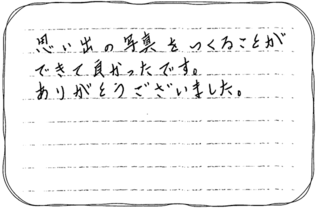 思い出の写真をつくることが
できて良かったです。
ありがとうございました。